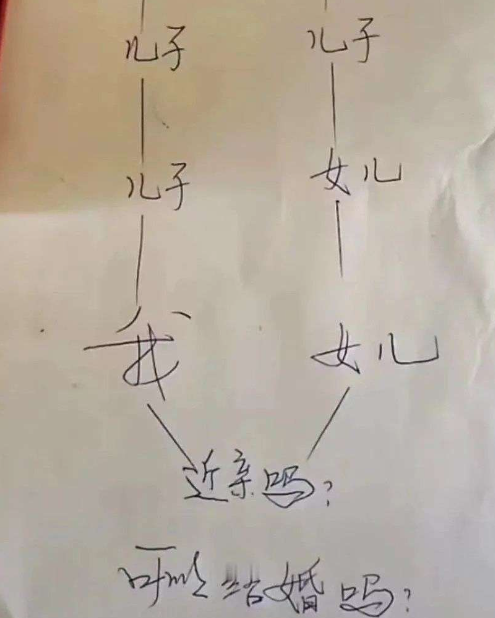 儿子 儿子
儿子 女儿
我 女儿
近亲吗?
可以结婚吗?